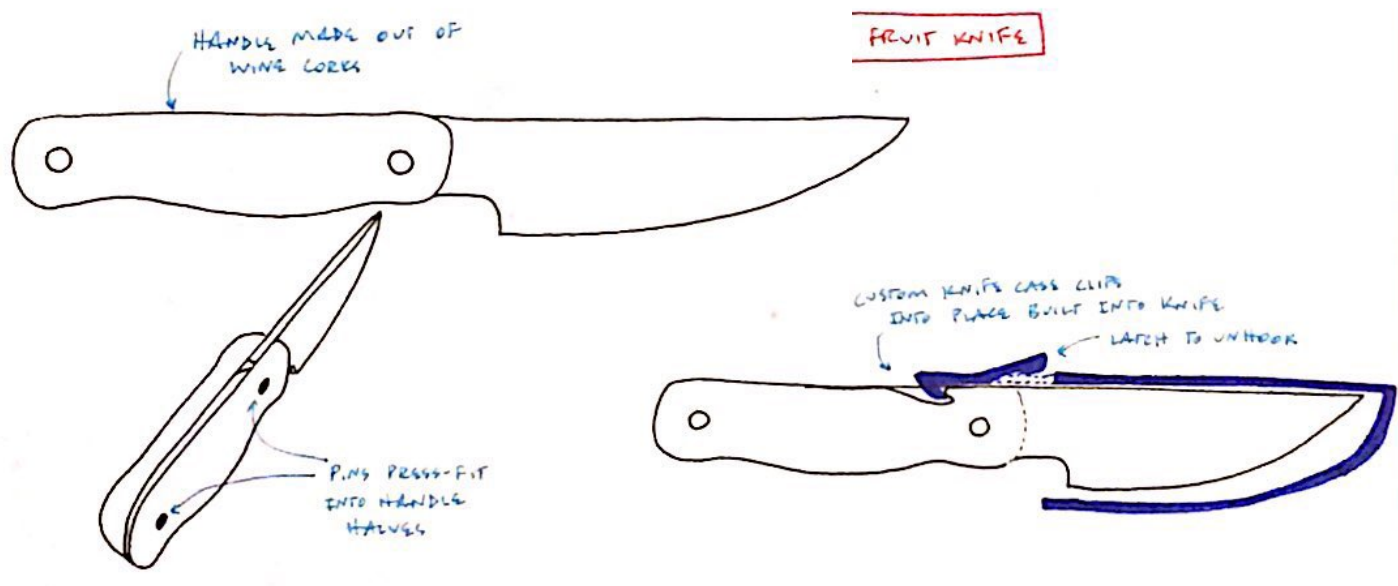 HANDLE MADE OUT OF
WINE CORKS
FRUIT KNIFE
CUSTOM KNIFE CASE CLIPS
INTO PLACE BUILT INTO KNIFE
LATCH TO UNHOOK
PINS PRESS-FIT
INTO HANDLE
HALVES